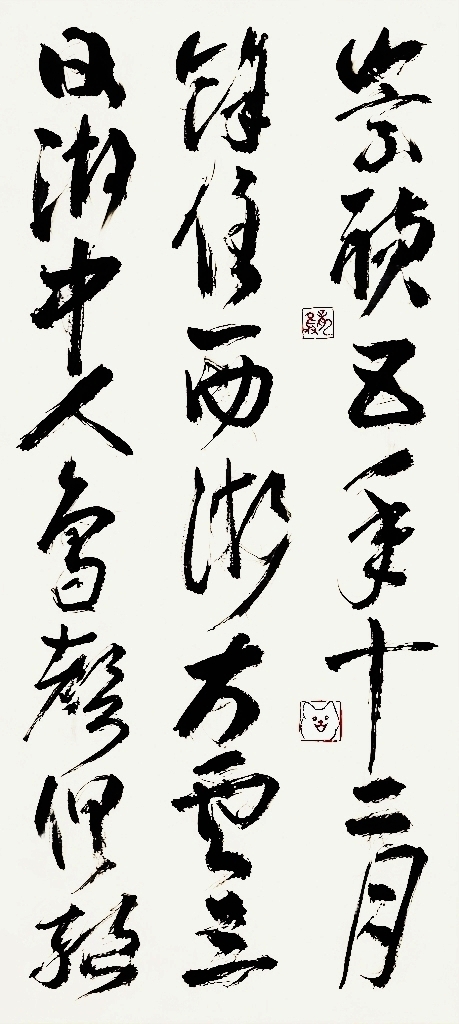 崇禎五年十二月
餘住西湖大雪三
日湖中人鳥聲俱絕